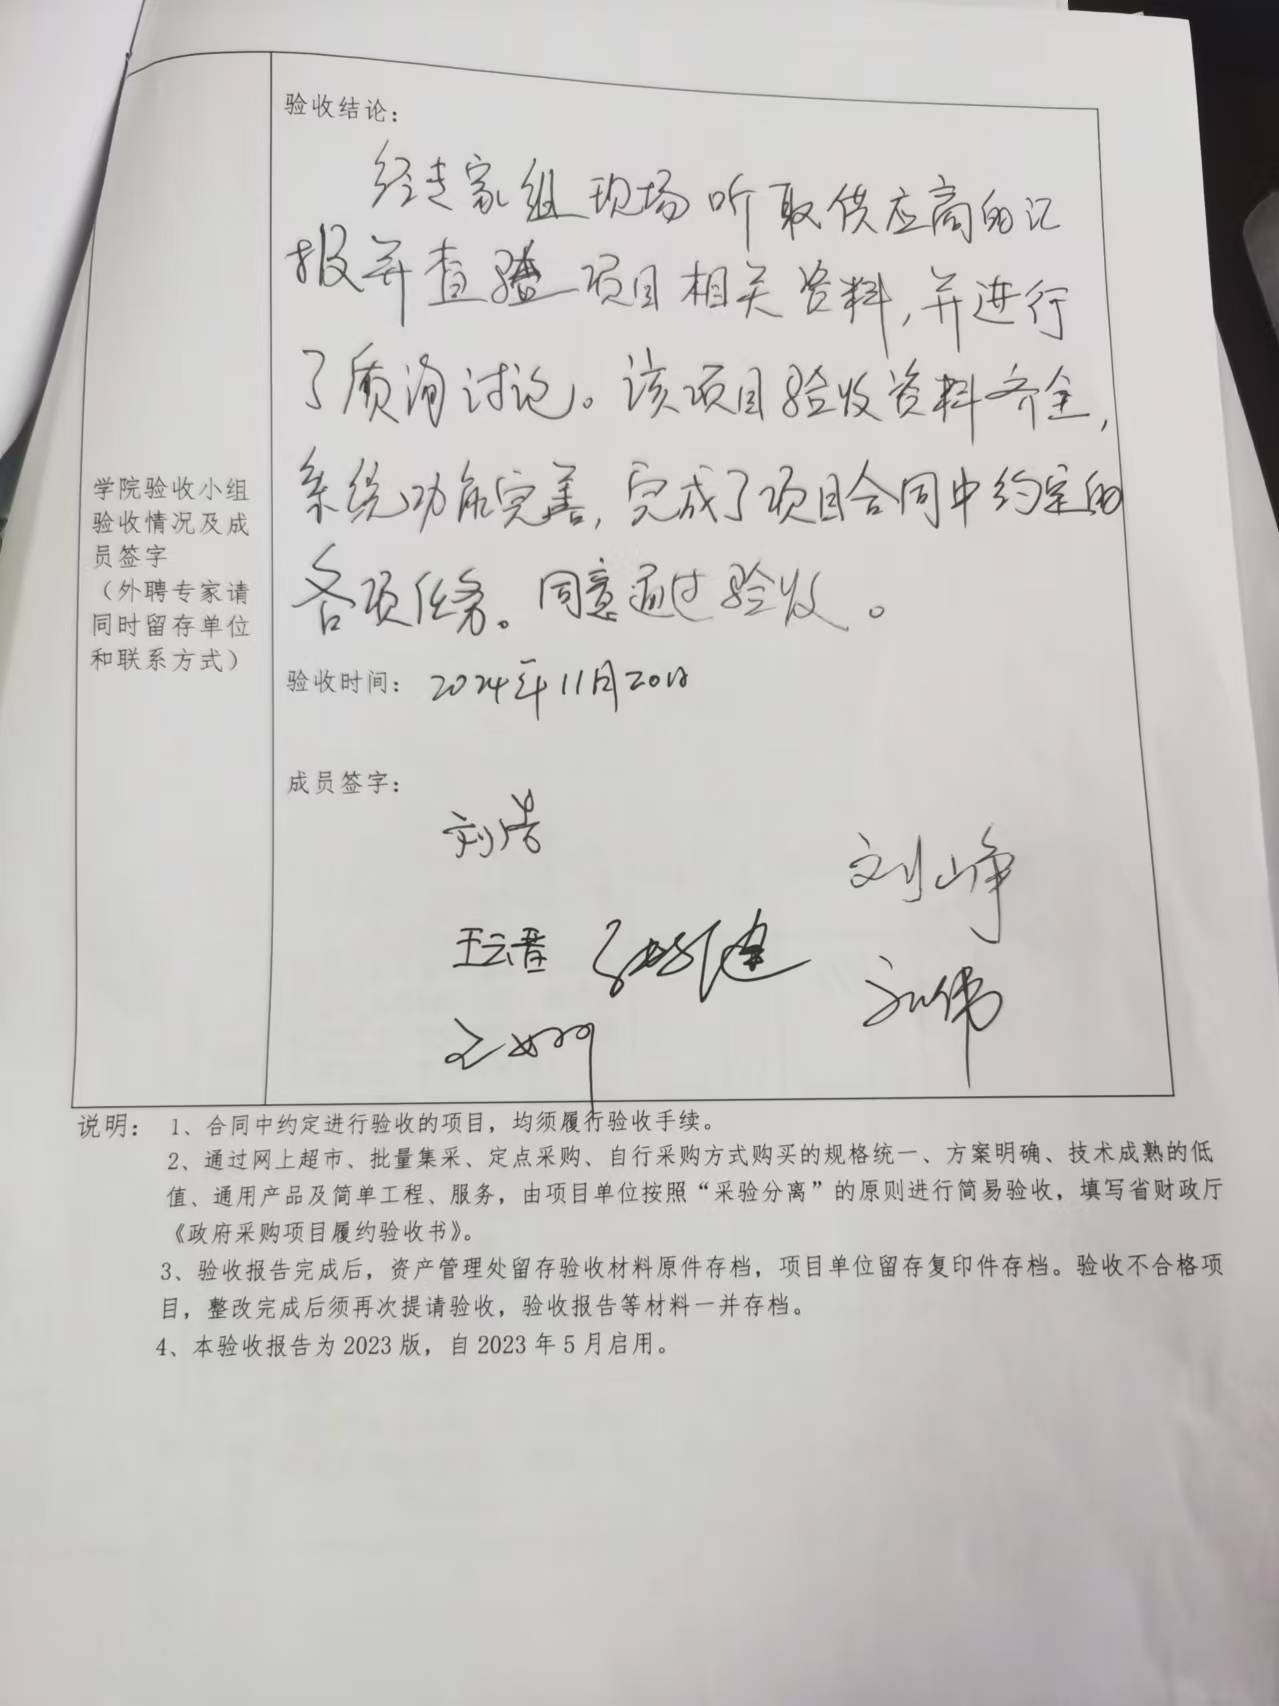 验收结论：
经专家组现场听取供应商的汇
报并查验项目相关资料，并进行
了质询讨论。该项目验收资料齐全，
系统功能完善，完成了项目合同中约定的
各项任务。同意通过验收。
学院验收小组
验收情况及成
员签字
（外聘专家请
同时留存单位
和联系方式）
验收时间：2024年11月20日
成员签字：
刘浩
刘峥
王云晋
说明：1、合同中约定进行验收的项目，均须履行验收手续。
2、通过网上超市、批量集采、定点采购、自行采购方式购买的规格统一、方案明确、技术成熟的低
值、通用产品及简单工程、服务，由项目单位按照“采验分离”的原则进行简易验收，填写省财政厅
《政府采购项目履约验收书》。
3、验收报告完成后，资产管理处留存验收材料原件存档，项目单位留存复印件存档。验收不合格项
目，整改完成后须再次提请验收，验收报告等材料一并存档。
4、本验收报告为2023版，自2023年5月启用。